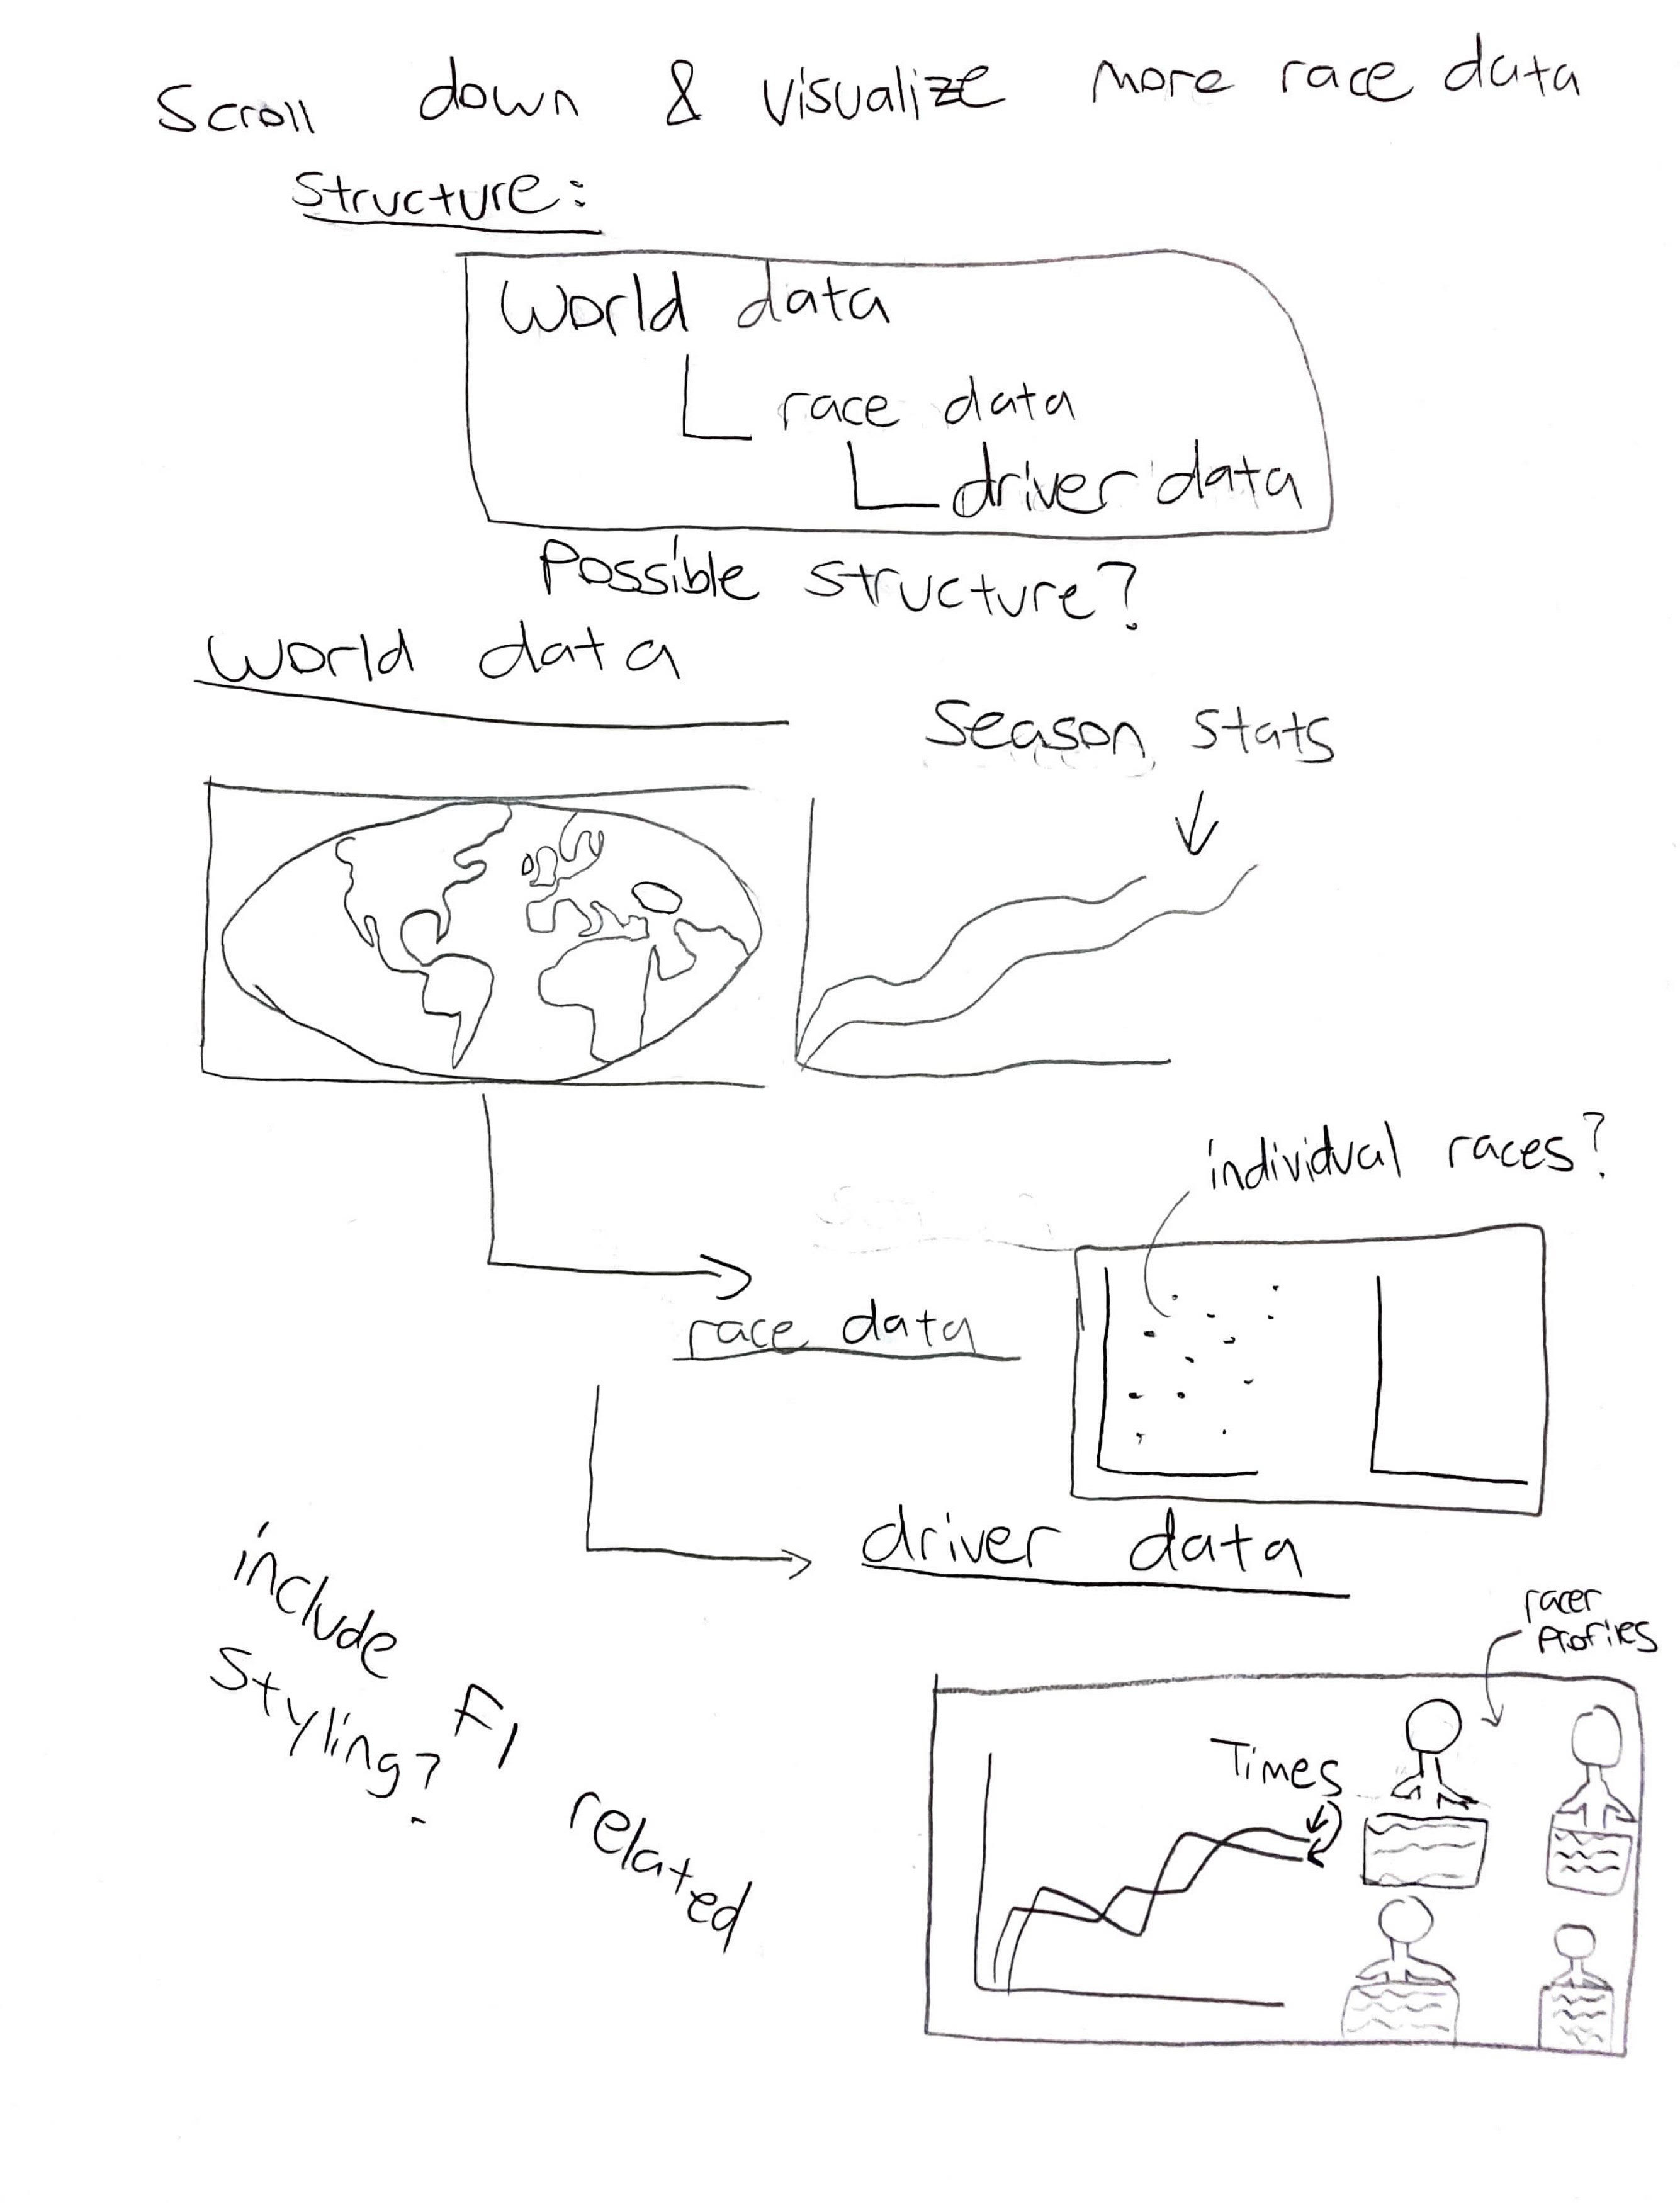 Scroll down & visualize more race data
Structure:
World data
race data
driver data
Possible structure?
World data
Season stats
individual races?
race data
driver data
racer
Profiles
include F1 related
Styling?
Times